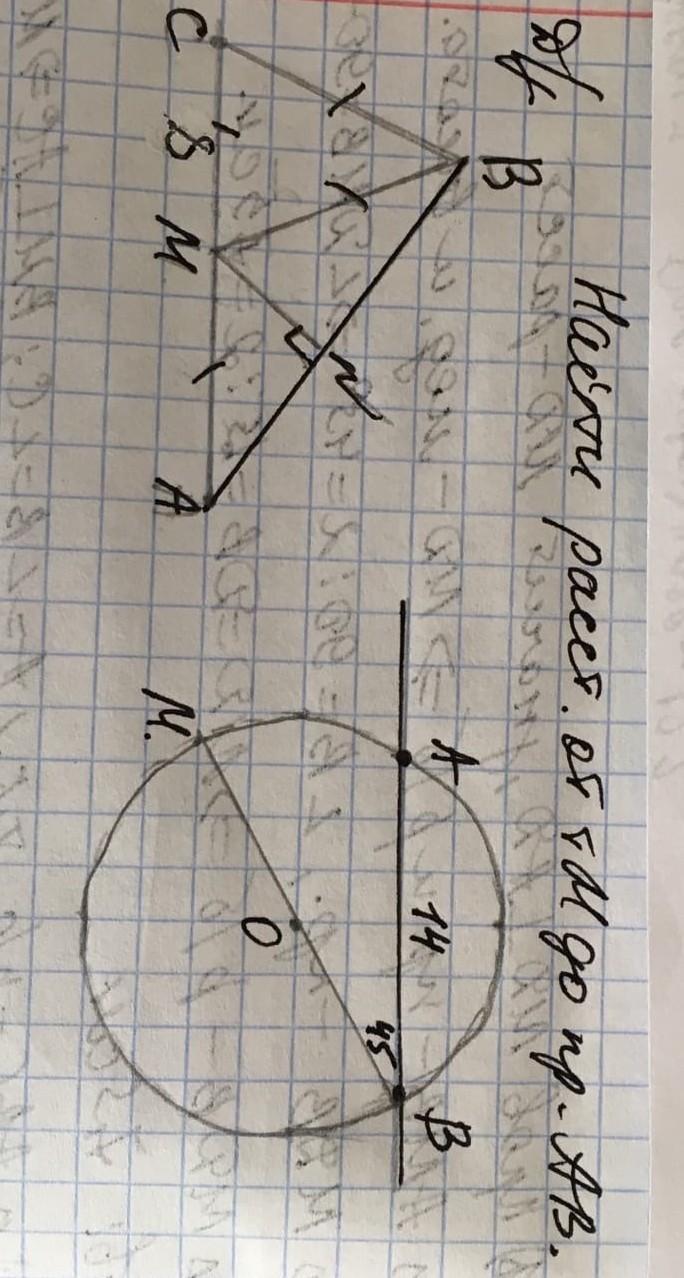 Д/з
Найти расст. от т М до пр. АВ.
B
C
8
M
N
A
A
14
45
B
O
M